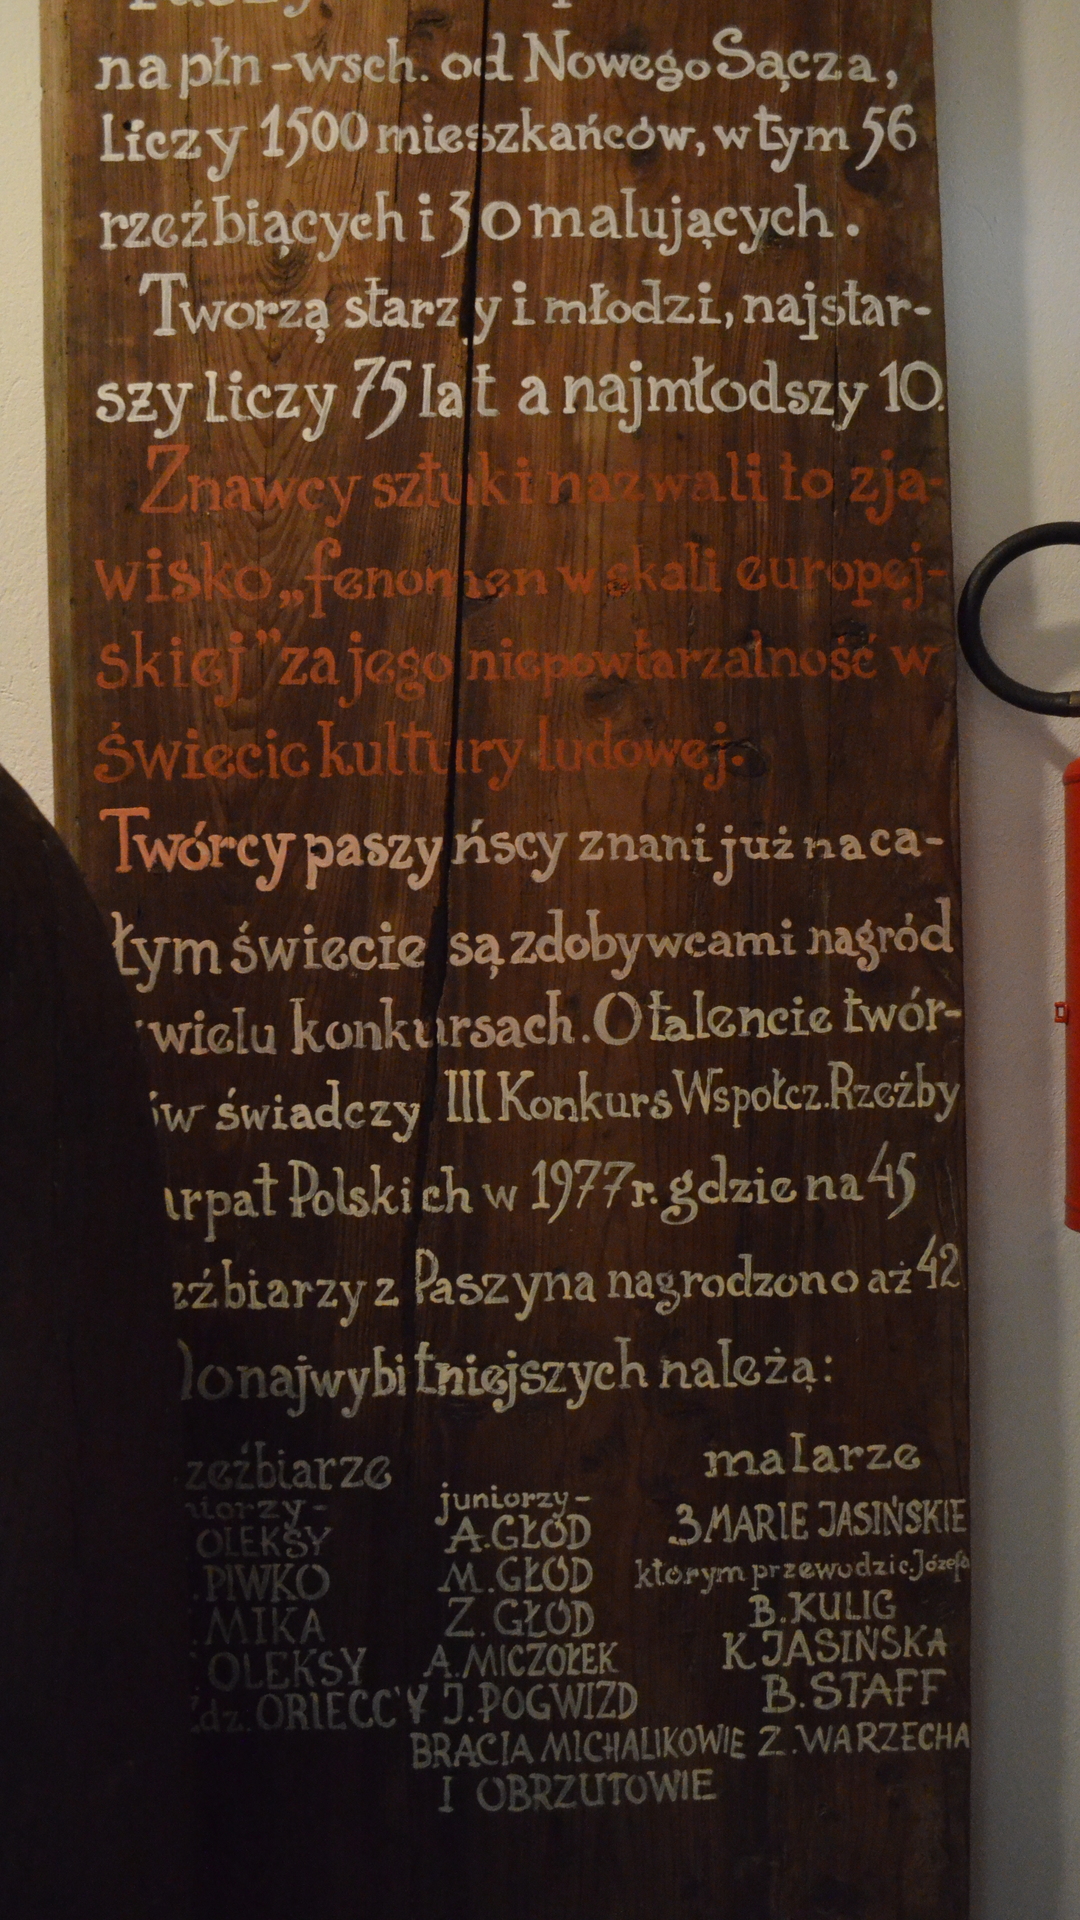 na płn-wsch. od Nowego Sącza,
Liczy 1500 mieszkańców, w tym 56
rzeźbiących i 30 malujących.
Tworzą starzy i młodzi, najstar-
szy liczy 75 lat a najmłodszy 10.
Znawcy sztuki nazwali to zja-
wisko „fenomen w skali europej-
skiej” za jego niepowtarzalność w
świecie kultury ludowej.
Twórcy paszyńscy znani już na ca-
łym świecie są zdobywcami nagród
wielu konkursach. O talencie twór-
ów świadczy III Konkurs Wspołcz. Rzeźby
arpat Polskich w 1977 r. gdzie na 45
eźbiarzy z Paszyna nagrodzono aż 42
Do najwybitniejszych należą:
zeźbiarze malarze
niorzy- juniorzy-
OLEKSY A. GŁÓD 3 MARIE JASIŃSKIE
PIWKO M. GŁÓD którym przewodzi c. Józefa
MIKA Z. GŁÓD B. KULIG
OLEKSY A. MICZOŁEK K. JASIŃSKA
Zdz. ORIECC'Y J. POGWIZD B. STAFF
BRACIA MICHALIKOWIE Z. WARZECHA
I OBRZUTOWIE